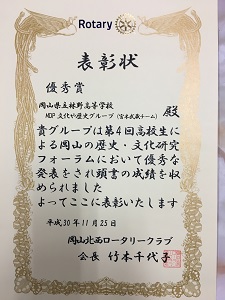 Rotary
表彰状
優秀賞
岡山県立林野高等学校
MDP 文化や歴史グループ(宮本武蔵チーム)
殿
貴グループは第4回高校生に
よる岡山の歴史・文化研究
フォーラムにおいて優秀な
発表をされ頭書の成績を収
められました
よってここに表彰いたします
平成30年11月25日
岡山北西ロータリークラブ
会長 竹本千代子